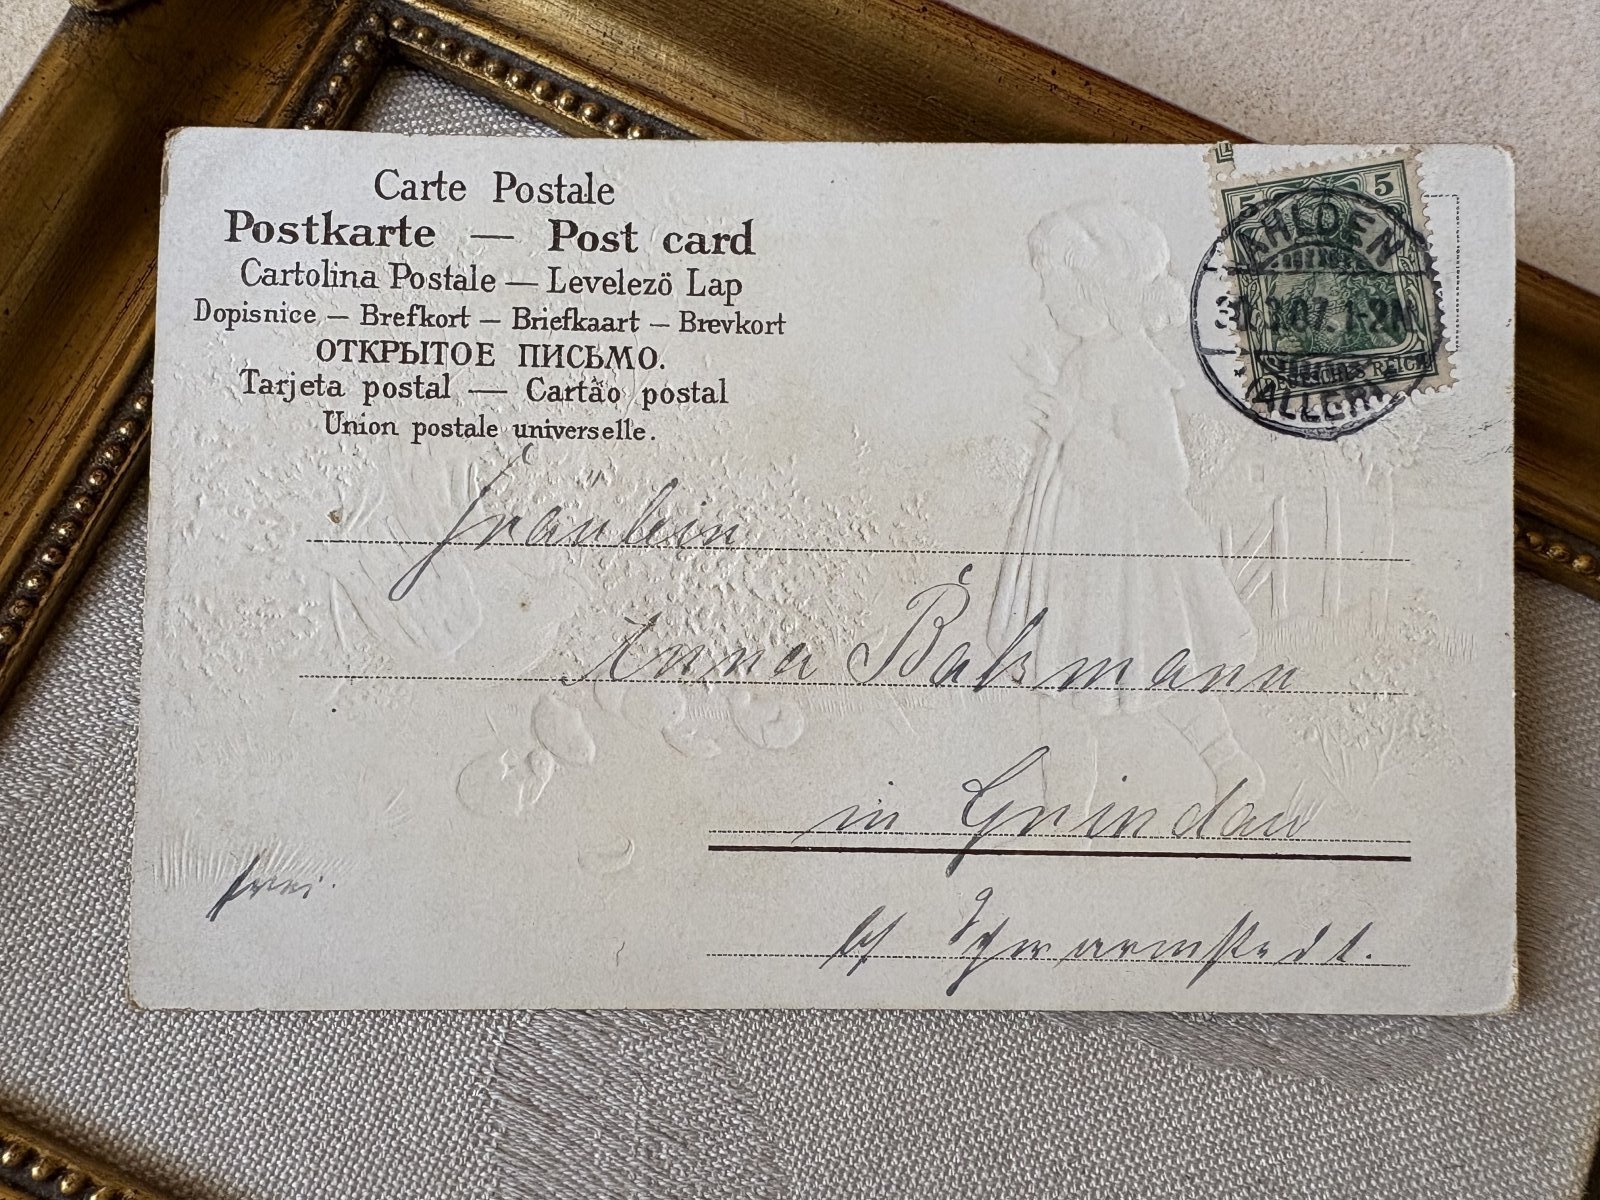 Carte Postale
Postkarte — Post card
Cartolina Postale — Levelező Lap
Dopisnice — Brefkort — Briefkaart — Brevkort
ОТКРЫТОЕ ПИСЬМО.
Tarjeta postal — Cartão postal
Union postale universelle.
5 5
AHLDEN
31.3.07. 1-2N
DEUTSCHES REICH
(ALLER)
Fräulein
Anna Balzmann
in Grindau
b/ Schwarmstedt.
frei.